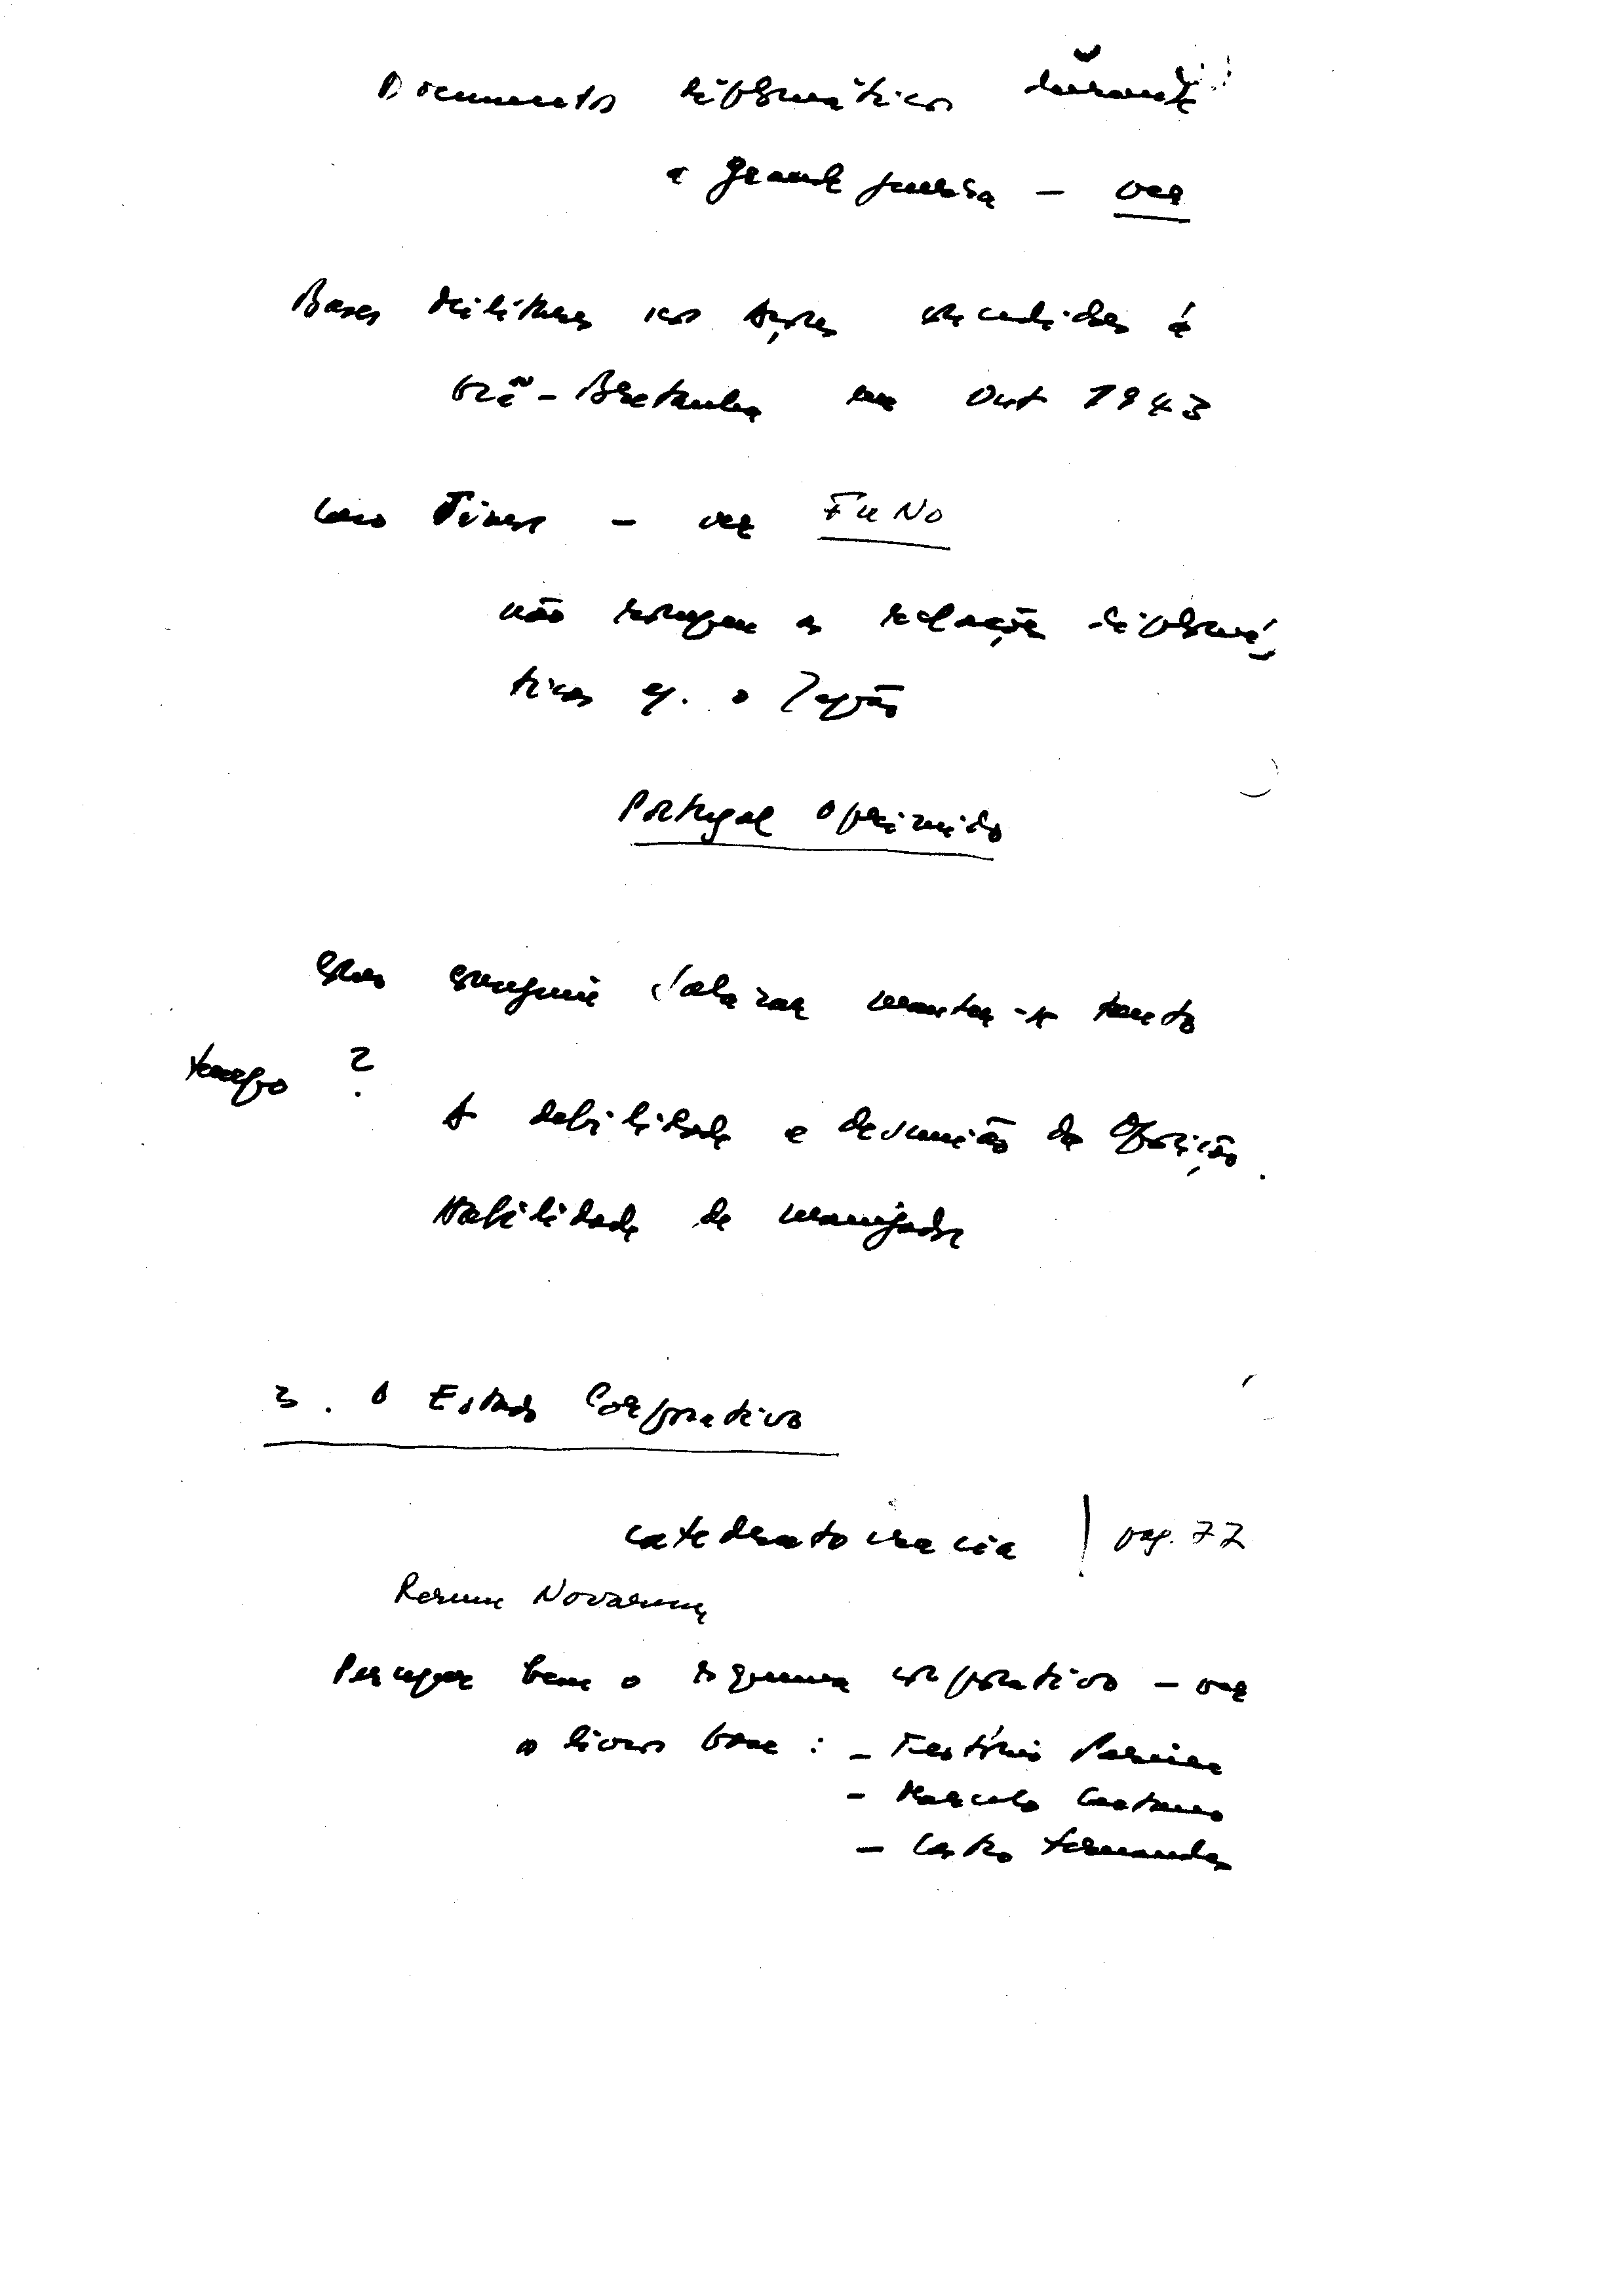 Documentos diplomáticos durante
a grande guerra - ver
Bases militares nos Açores concedidas à
Grã-Bretanha em Out 1943
Caso Timor - ver FUNO
não rompem as relações diplomá
ticas c. o Japão
Portugal Oprimido
Como conseguiu Salazar manter-se tanto
tempo ?
A debilidade e desunião da Oposição.
Habilidade de manejador
3. O Estado Corporativo
catedratocracia | pag. 77
Rerum Novarum
Perceber bem o esquema corporativo - ver
os livros base : - Teotónio Pereira
- Marcelo Caetano
- Castro Fernandes